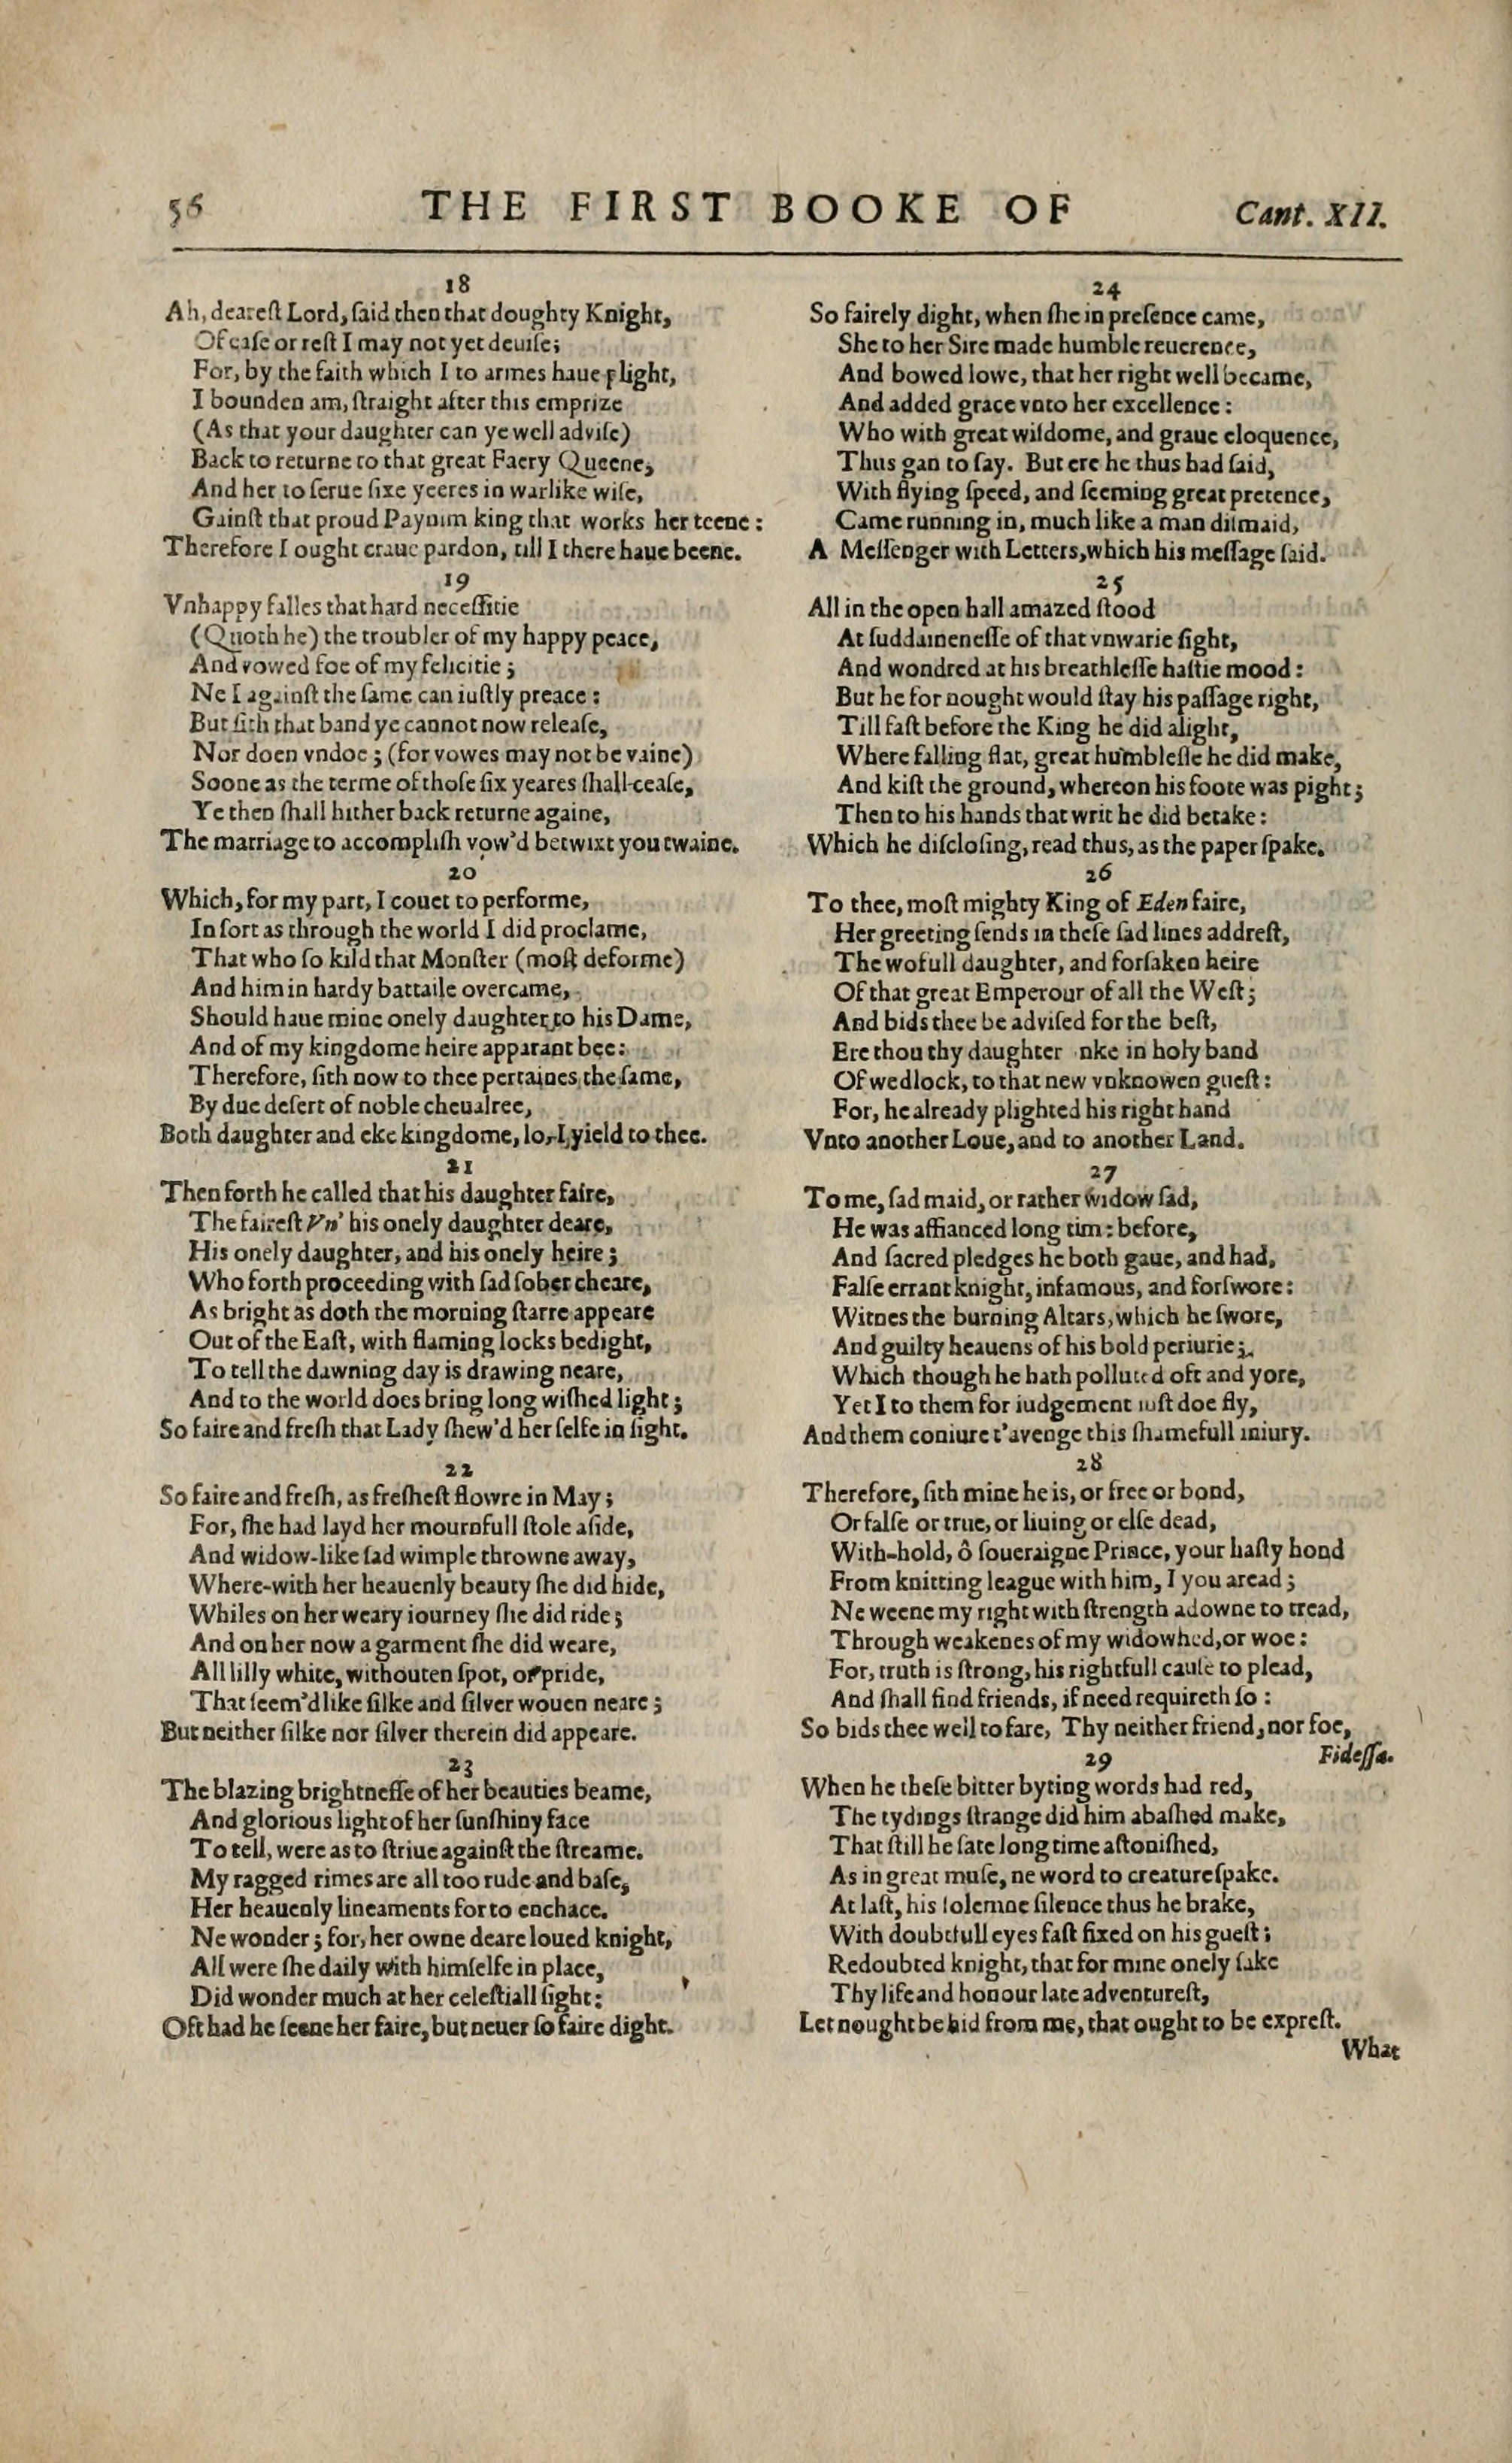 56 THE FIRST BOOKE OF Cant. XII.
18
Ah, deareſt Lord, ſaid then that doughty Knight,
Of eaſe or reſt I may not yet deuiſe;
For, by the faith which I to armes haue plight,
I bounden am, ſtraight after this emprize
(As that your daughter can ye well adviſe)
Back to returne to that great Faery Queene,
And her to ſerue ſixe yeeres in warlike wiſe,
Gainſt that proud Paynim king that works her teene:
Therefore I ought craue pardon, till I there haue beene.
19
Vnhappy falles that hard neceſſitie
(Quoth he) the troubler of my happy peace,
And vowed foe of my felicitie;
Ne I againſt the ſame can iuſtly preace:
But ſith that band ye cannot now releaſe,
Nor doen vndoe; (for vowes may not be vaine)
Soone as the terme of thoſe ſix yeares ſhall ceaſe,
Ye then ſhall hither back returne againe,
The marriage to accompliſh vow'd betwixt you twaine.
20
Which, for my part, I couet to performe,
In ſort as through the world I did proclame,
That who ſo kild that Monſter (moſt deforme)
And him in hardy battaile overcame,
Should haue mine onely daughter to his Dame,
And of my kingdome heire apparant bee:
Therefore, ſith now to thee pertaines the ſame,
By due deſert of noble cheualree,
Both daughter and eke kingdome, lo, I yield to thee.
21
Then forth he called that his daughter faire,
The faireſt Vn' his onely daughter deare,
His onely daughter, and his onely heire;
Who forth proceeding with ſad ſober cheare,
As bright as doth the morning ſtarre appeare
Out of the Eaſt, with flaming locks bedight,
To tell the dawning day is drawing neare,
And to the world does bring long wiſhed light;
So faire and freſh that Lady ſhew'd her ſelfe in ſight.
22
So faire and freſh, as freſheſt flowre in May;
For, ſhe had layd her mournfull ſtole aſide,
And widow-like ſad wimple throwne away,
Where-with her heauenly beauty ſhe did hide,
Whiles on her weary iourney ſhe did ride;
And on her now a garment ſhe did weare,
All lilly white, withouten ſpot, or pride,
That ſeem'd like ſilke and ſilver wouen neare;
But neither ſilke nor ſilver therein did appeare.
23
The blazing brightneſſe of her beauties beame,
And glorious light of her ſunſhiny face
To tell, were as to ſtriue againſt the ſtreame.
My ragged rimes are all too rude and baſe,
Her heauenly lineaments for to enchace.
Ne wonder; for, her owne deare loued knight,
All were ſhe daily with himſelfe in place,
Did wonder much at her celeſtiall ſight:
Oft had he ſeene her faire, but neuer ſo faire dight.
24
So fairely dight, when ſhe in preſence came,
She to her Sire made humble reuerence,
And bowed lowe, that her right well became,
And added grace vnto her excellence:
Who with great wiſdome, and graue eloquence,
Thus gan to ſay. But ere he thus had ſaid,
With flying ſpeed, and ſeeming great pretence,
Came running in, much like a man diſmaid,
A Meſſenger with Letters, which his meſſage ſaid.
25
All in the open hall amazed ſtood
At ſuddaineneſſe of that vnwarie ſight,
And wondred at his breathleſſe haſtie mood:
But he for nought would ſtay his paſſage right,
Till faſt before the King he did alight,
Where falling flat, great humbleſſe he did make,
And kiſt the ground, whereon his foote was pight;
Then to his hands that writ he did betake:
Which he diſcloſing, read thus, as the paper ſpake.
26
To thee, moſt mighty King of Eden faire,
Her greeting ſends in theſe ſad lines addreſt,
The wofull daughter, and forſaken heire
Of that great Emperour of all the Weſt;
And bids thee be adviſed for the beſt,
Ere thou thy daughter nke in holy band
Of wedlock, to that new vnknowen gueſt:
For, he already plighted his right hand
Vnto another Loue, and to another Land.
27
To me, ſad maid, or rather widow ſad,
He was affianced long time before,
And ſacred pledges he both gaue, and had,
Falſe errant knight, infamous, and forſwore:
Witnes the burning Altars, which he ſwore,
And guilty heauens of his bold periurie;
Which though he hath polluted oft and yore,
Yet I to them for iudgement iuſt doe fly,
And them coniure t'avenge this ſhamefull iniury.
28
Therefore, ſith mine he is, or free or bond,
Or falſe or true, or liuing or elſe dead,
With-hold, ô ſoueraigne Prince, your haſty hond
From knitting league with him, I you aread;
Ne weene my right with ſtrength adowne to tread,
Through weakenes of my widowhed, or woe:
For, truth is ſtrong, his rightfull cauſe to plead,
And ſhall find friends, if need requireth ſo:
So bids thee well to fare, Thy neither friend, nor foe,
Fideſſa.
29
When he theſe bitter byting words had red,
The tydings ſtrange did him abaſhed make,
That ſtill he ſate long time aſtoniſhed,
As in great muſe, ne word to creature ſpake.
At laſt, his ſolemne ſilence thus he brake,
With doubtfull eyes faſt fixed on his gueſt;
Redoubted knight, that for mine onely ſake
Thy life and honour late adventureſt,
Let nought be hid from me, that ought to be expreſt.
What